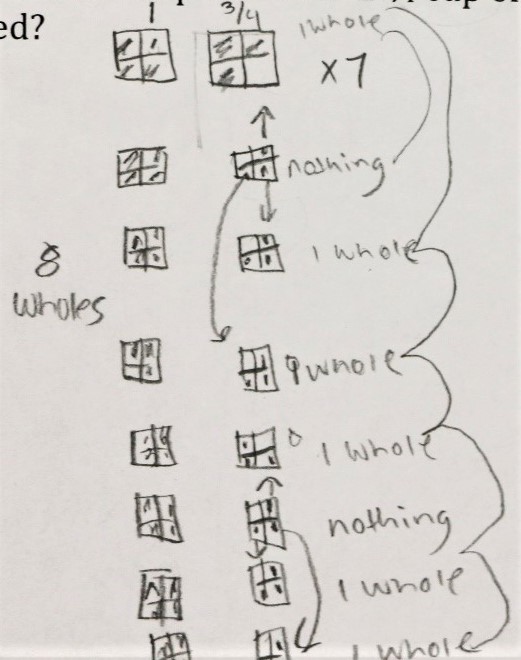 ed?
1 3/4 1 whole
x 7
nothing
1 whole
8
wholes
1 whole
1 whole
nothing
1 whole
1 whole